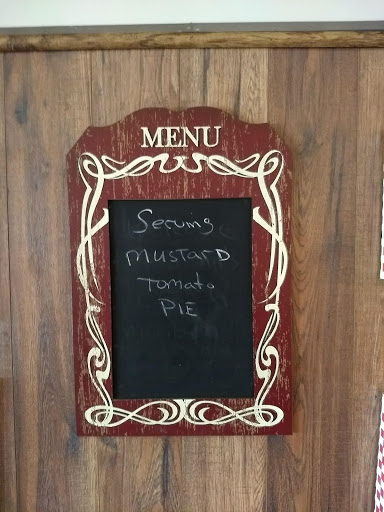 MENU
Serving
MUSTARD
TOMATO
PIE